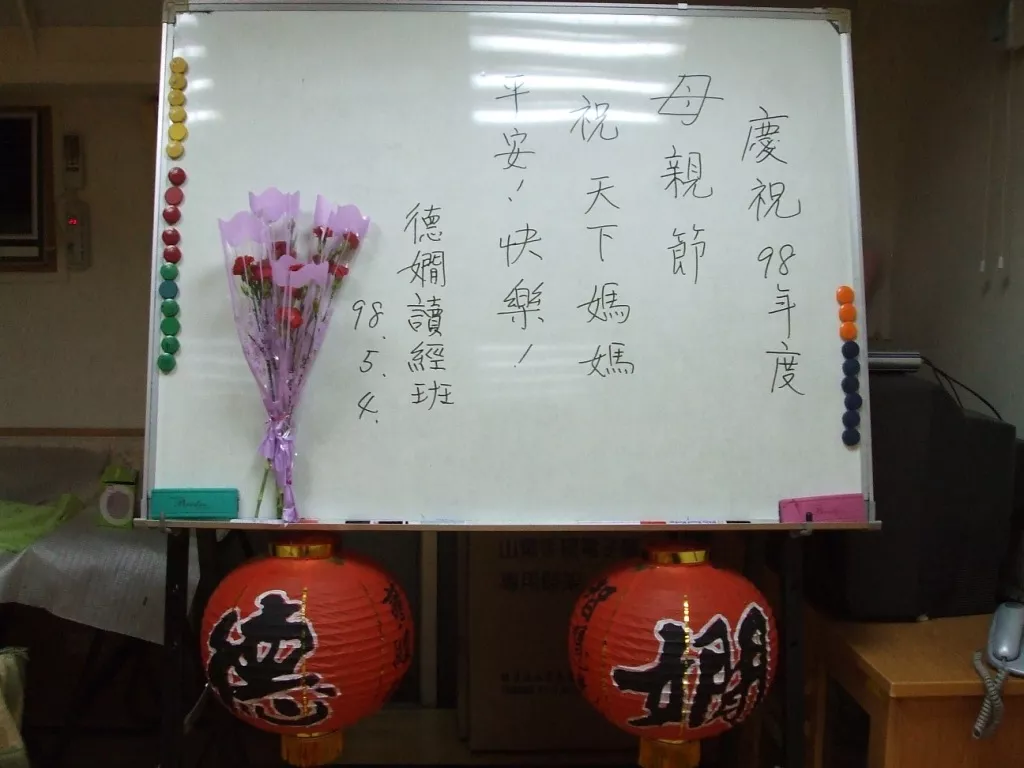 慶祝98年度
母親節
祝天下媽媽
平安!快樂!
德嫺讀經班
98.5.4.
德
嫺